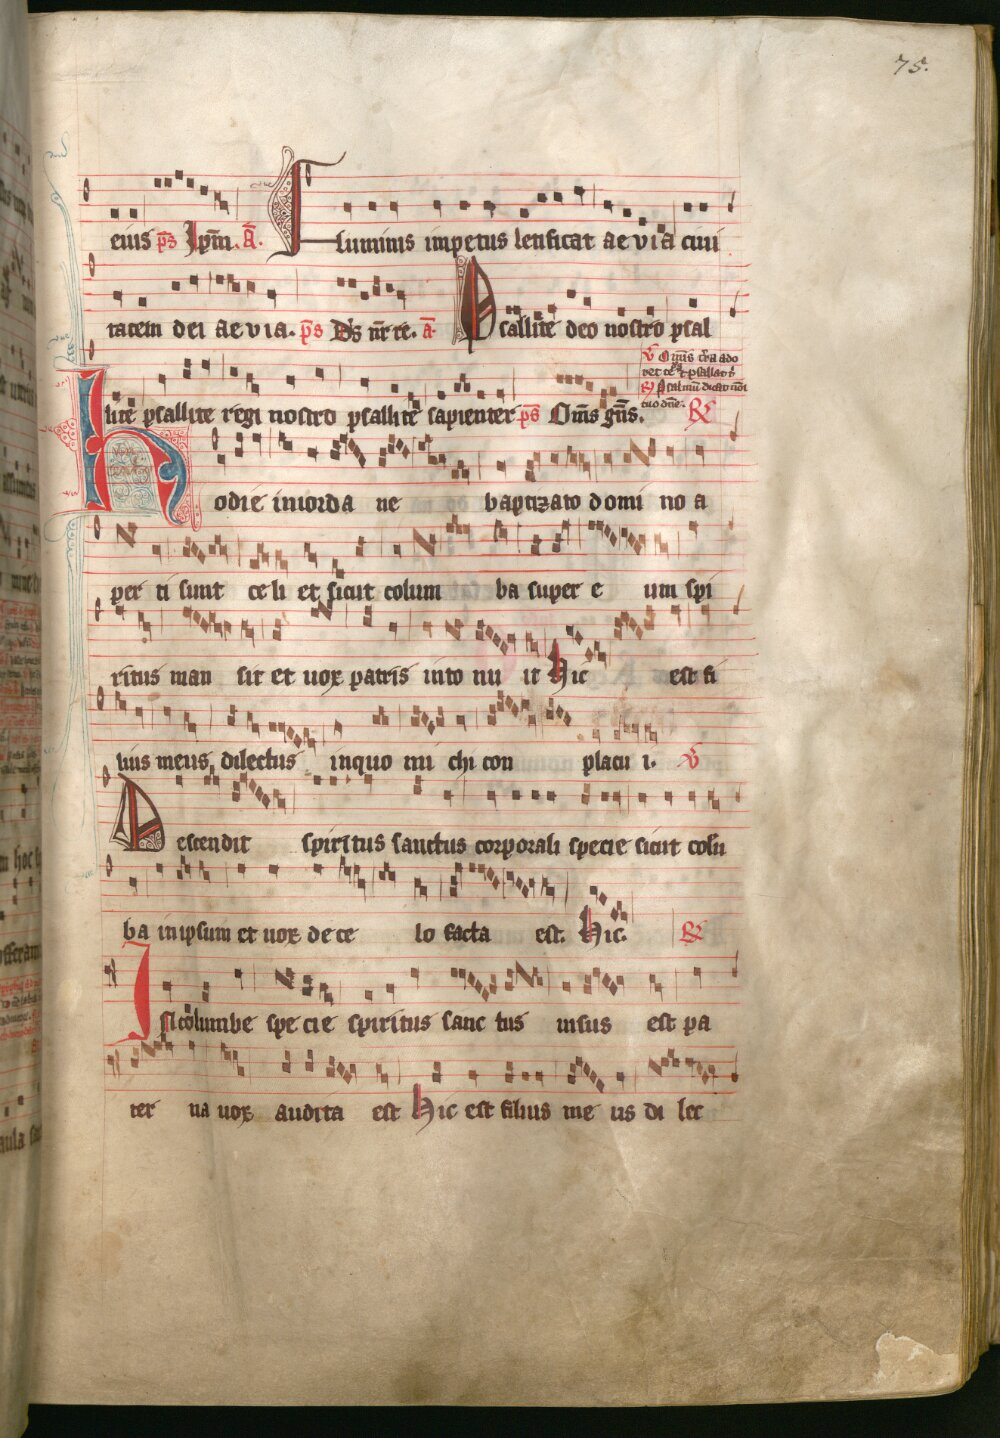 75.
eius p̄s Ipm̄. ā.
Fluminis impetus letificat aevia ciui
tatem dei aevia. p̄s D̄s nr̄ re. ā
Psallite deo nostro psal
℣ Om̄is t̄ra ado
ret te & psallat t̄
℟ Psalmū dicat nōi
tuo dn̄e.
lite psallite regi nostro psallite sapienter p̄s Om̄s gn̄s. ℟
hodie in iorda ne baptizato domi no a
per ti sunt ce li et sicut colum ba super e um spi
ritus man sit et uox patris into nu it hic est fi
lius meus dilectus in quo mi chi con placu i. ℣
Descendit spiritus sanctus corporali specie sicut colū
ba in ipsum et uox de ce lo facta est. hic. ℟
In columbe spe cie spiritus sanc tus uisus est pa
ter na uox audita est hic est filius me us di lec